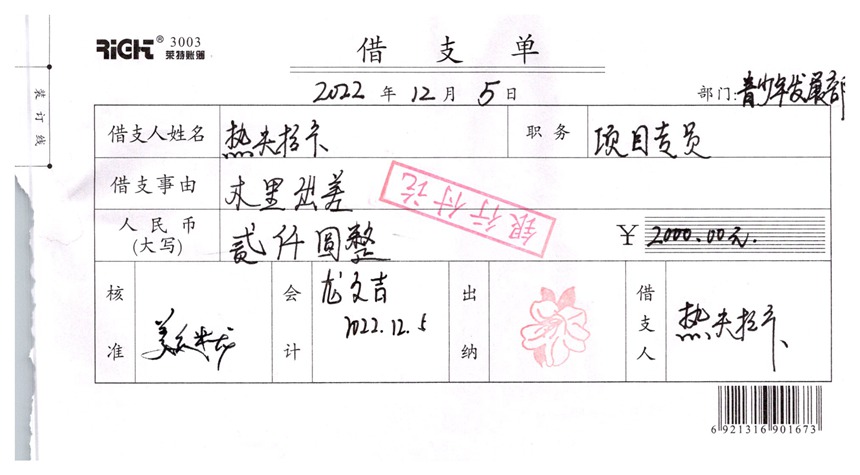 RiGHT® 3003
莱特账簿
借支单
2022 年 12 月 5 日
部门:青少年发展部
装订线
借支人姓名 热夫拉卡
职务 项目专员
借支事由 木里出差
银行付讫
人民币
(大写) 贰仟圆整
¥ 2000.00元.
核准
会计 龙文吉
2022.12.5
出纳
借支人 热夫拉卡
6 921316 901673